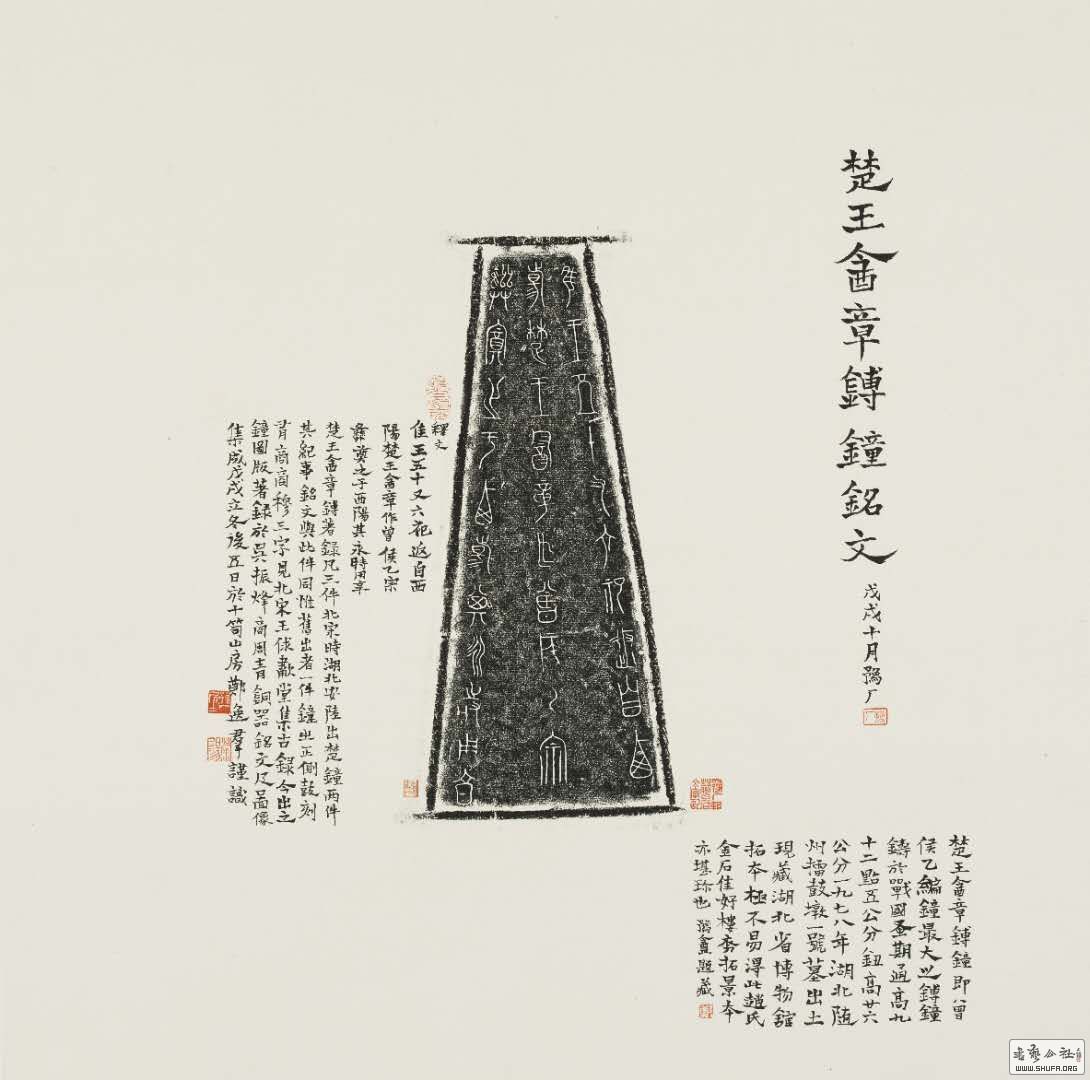 楚王酓章鎛鐘銘文
戊戌十月
隹王五十又六祀返自西
昜楚王酓章乍曾侯乙宗
彝奠之于西昜其永用享
釋文
隹王五十又六祀返自西
陽楚王酓章作曾侯乙宗
彝奠之于西陽其永時用享
楚王酓章鐏著録凡三件北宋時湖北安陸出楚鐘兩件
其紀事銘文與此件同惟舊出者一件鐘出正側鼓刻
商商穆三字見北宋王俅歗堂集古録今出之
鐘圖版著録於吳振烽商周青銅器銘文及圖像
集成戊戌立冬後五日於十笥山房鄭逸群謹識
楚王酓章鎛鐘即曾
侯乙編鐘最大之鎛鐘
鑄於戰國蚤期通高九
十二點五公分鈕高廿六
公分一九七八年湖北隨
州擂鼓墩一號墓出土
現藏湖北省博物館
拓本極不易得此趙氏
金石佳好樓拓景本
亦堪珍也 盦題藏
書藝公社
WWW.SHUFA.ORG